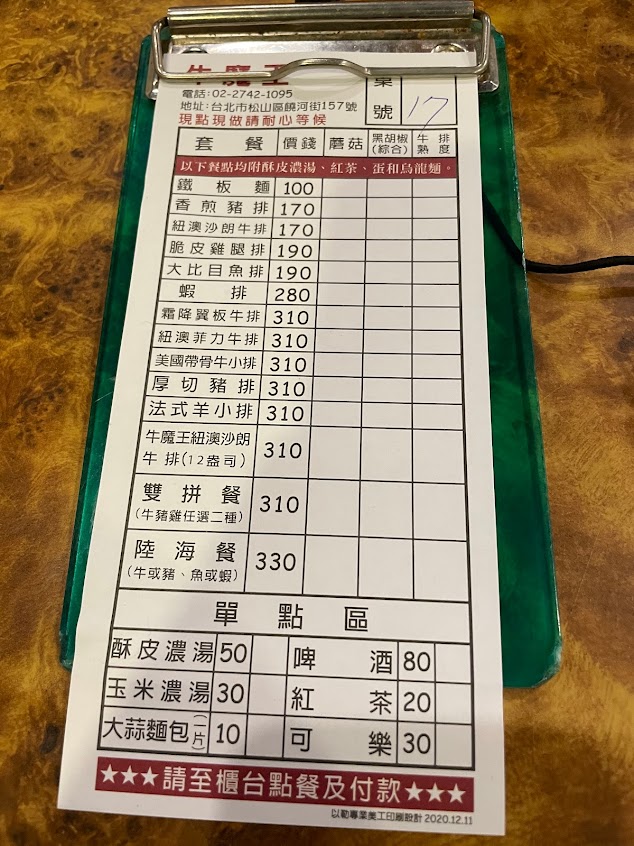 牛魔王
桌號 17
電話:02-2742-1095
地址:台北市松山區饒河街157號
現點現做請耐心等候
套餐 價錢 蘑菇 黑胡椒(綜合) 牛排熟度
以下餐點均附酥皮濃湯、紅茶、蛋和烏龍麵。
鐵板麵 100
香煎豬排 170
紐澳沙朗牛排 170
脆皮雞腿排 190
大比目魚排 190
蝦排 280
霜降翼板牛排 310
紐澳菲力牛排 310
美國帶骨牛小排 310
厚切豬排 310
法式羊小排 310
牛魔王紐澳沙朗
牛排(12盎司) 310
雙拼餐 310
(牛豬雞任選二種)
陸海餐 330
(牛或豬、魚或蝦)
單點區
酥皮濃湯 50 啤酒 80
玉米濃湯 30 紅茶 20
大蒜麵包(一片) 10 可樂 30
★★★請至櫃台點餐及付款★★★
以勒專業美工印刷設計 2020.12.11